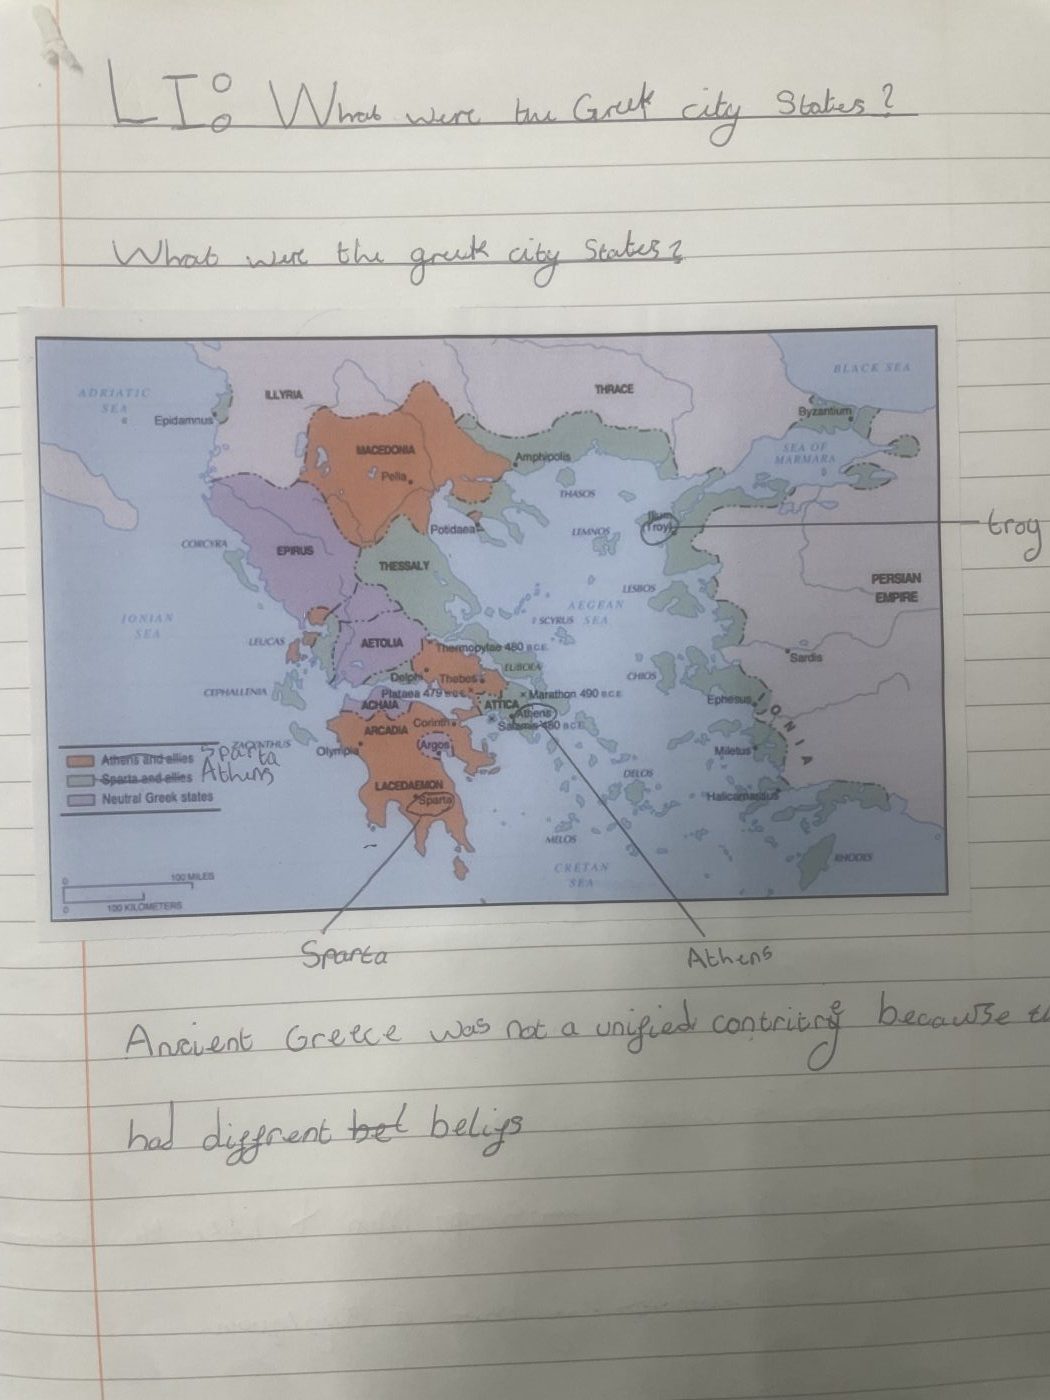 LI: What were the Greek city States?
What were the greek city States?
ADRIATIC
SEA
Epidamnus
ILLYRIA
THRACE
BLACK SEA
Byzantium
SEA OF
MARMARA
MACEDONIA
Pella
Amphipolis
THASOS
Potidaea
LEMNOS
Ilium
(Troy)
troy
CORCYRA
EPIRUS
THESSALY
PERSIAN
EMPIRE
LESBOS
AEGEAN
SEA
SCYRUS
IONIAN
SEA
LEUCAS
AETOLIA
Thermopylae 480 B.C.E.
EUBOEA
Sardis
Delphi
Thebes
CHIOS
CEPHALLENIA
Plataea 479 B.C.E.
Marathon 490 B.C.E.
ACHAIA
ATTICA
Athens
Ephesus
IONIA
ARCADIA
Corinth
Salamis 480 B.C.E.
Olympia
(Argos)
Miletus
Athens and allies Sparta
Sparta and allies Athens
Neutral Greek states
LACEDAEMON
Sparta
DELOS
Halicarnassus
MELOS
CRETAN
SEA
RHODES
0 100 MILES
0 100 KILOMETERS
Sparta
Athens
Ancient Greece was not a unified
had diffrent bel belifs